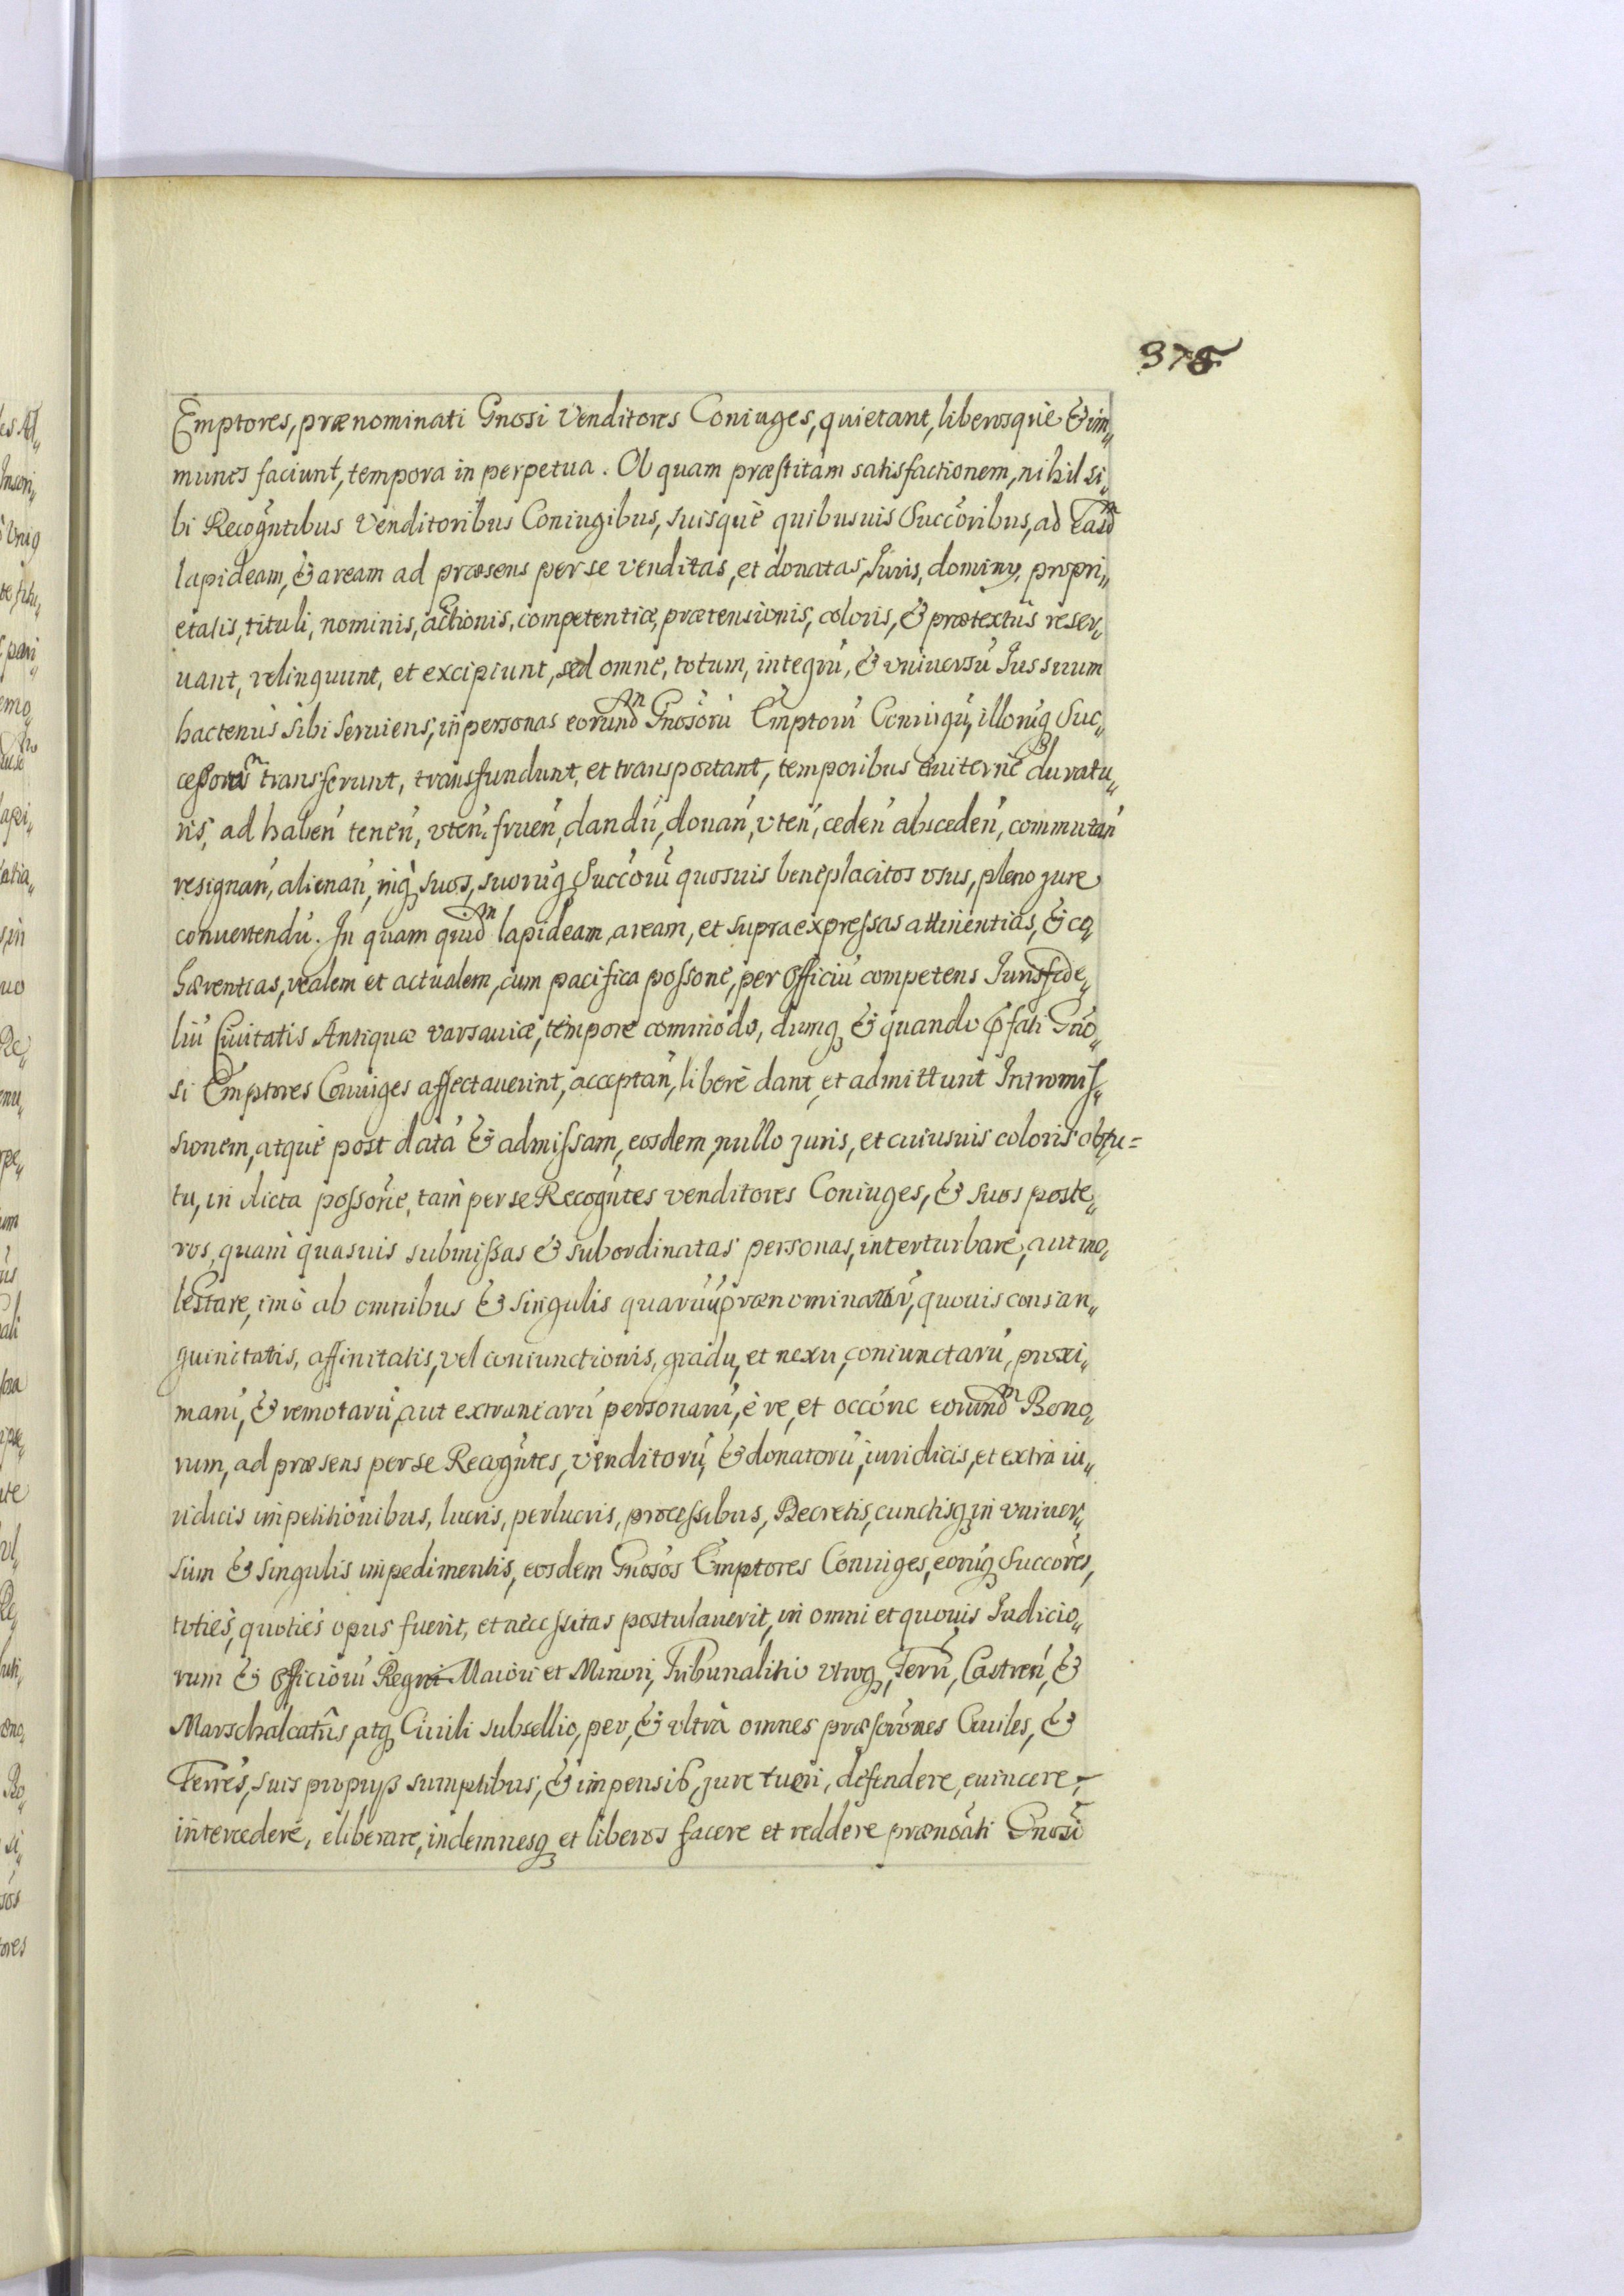 375
Emptores, prænominati Gnosi Venditores Coniuges, quietant, liberosque & im„
munes faciunt, tempora in perpetua. Ob quam præstitam satisfactionem, nihil si„
bi Recogñtibus Venditoribus Coniugibus, suisquè quibusuis Succoribus, ad Easdm
lapideam, & aream ad præsens per se venditas, et donatas, Juris, dominy, propri„
etatis, tituli, nominis, actionis, competentiæ, prætensionis, coloris, & prætextûs reser„
uant, relinquunt, et excipiunt, sed omne, totum, integrú, & vniuersú Jus suum
hactenùs sibi seruiens, in personas eorundm Gnosorú Emptorú Coniugú, illorúq Suc„
cessorú transferunt, transfundunt, et transportant, temporibus æuiternè duratu„
ris, ad habeń teneń, vteń. frueń, dandú, donań, vteń, cedeń absceden, commutań
resignań, alienań, niq suos, suorúq Succorú quosuis beneplacitos vsus, pleno jure
conuertendú. In quam quidm lapideam, aream, et supra expressas attinentias, & co„
hærentias, realem et actualem, cum pacifica possone, per officiú competens Juris fide„
liú Ciuitatis Antiquæ varsauiæ, tempore commodo, dumq & quando p̃fati Gno„
si Emptores Coniuges affectauerint, acceptań, liberè dant, et admittunt Intromis„
sionem, atquè post datá & admissam, eosdem nullo juris, et cuiusuis coloris obtu=
tu, in dicta possone, tam per se Recogñtes venditores Coniuges, & suos poste„
ros, quam quasuis submissas & subordinatas personas, interturbare, aut mo„
lestare, imò ab omnibus & singulis quarúuis prænominatarú, quouis consan„
guinitatis, affinitatis, vel coniunctionis, gradu, et nexu, coniunctarú, proxi„
marú, & remotarú, aut extranearú personarú, è re, et occone eorundm Bono„
rum, ad præsens per se Recogñtes, venditorú, & donatorú, iuridicis, et extra iu„
ridicis impetitionibus, lucris, perlucris, processibus, Decretis, cunctisq in vniuer„
sum & singulis impedimentis, eosdem Gnosos Emptores Coniuges, eorúq Succores,
toties, quoties opus fuerit, et necessitas postulauerit, in omni et quouis Judicio„
rum & officiorú Regni Maiori et Minori, Tribunalitio vtroq, Terrú, Castreń, &
Marschalcatûs, atq Ciuili subsellio, per, & vltrà omnes præscrones Ciuiles, &
Terres, suis proprys sumptibus, & impensis, jure tueri, defendere, euincere,
intercedere, eliberare, indemnesq et liberos facere et reddere prænoãti Gnosi